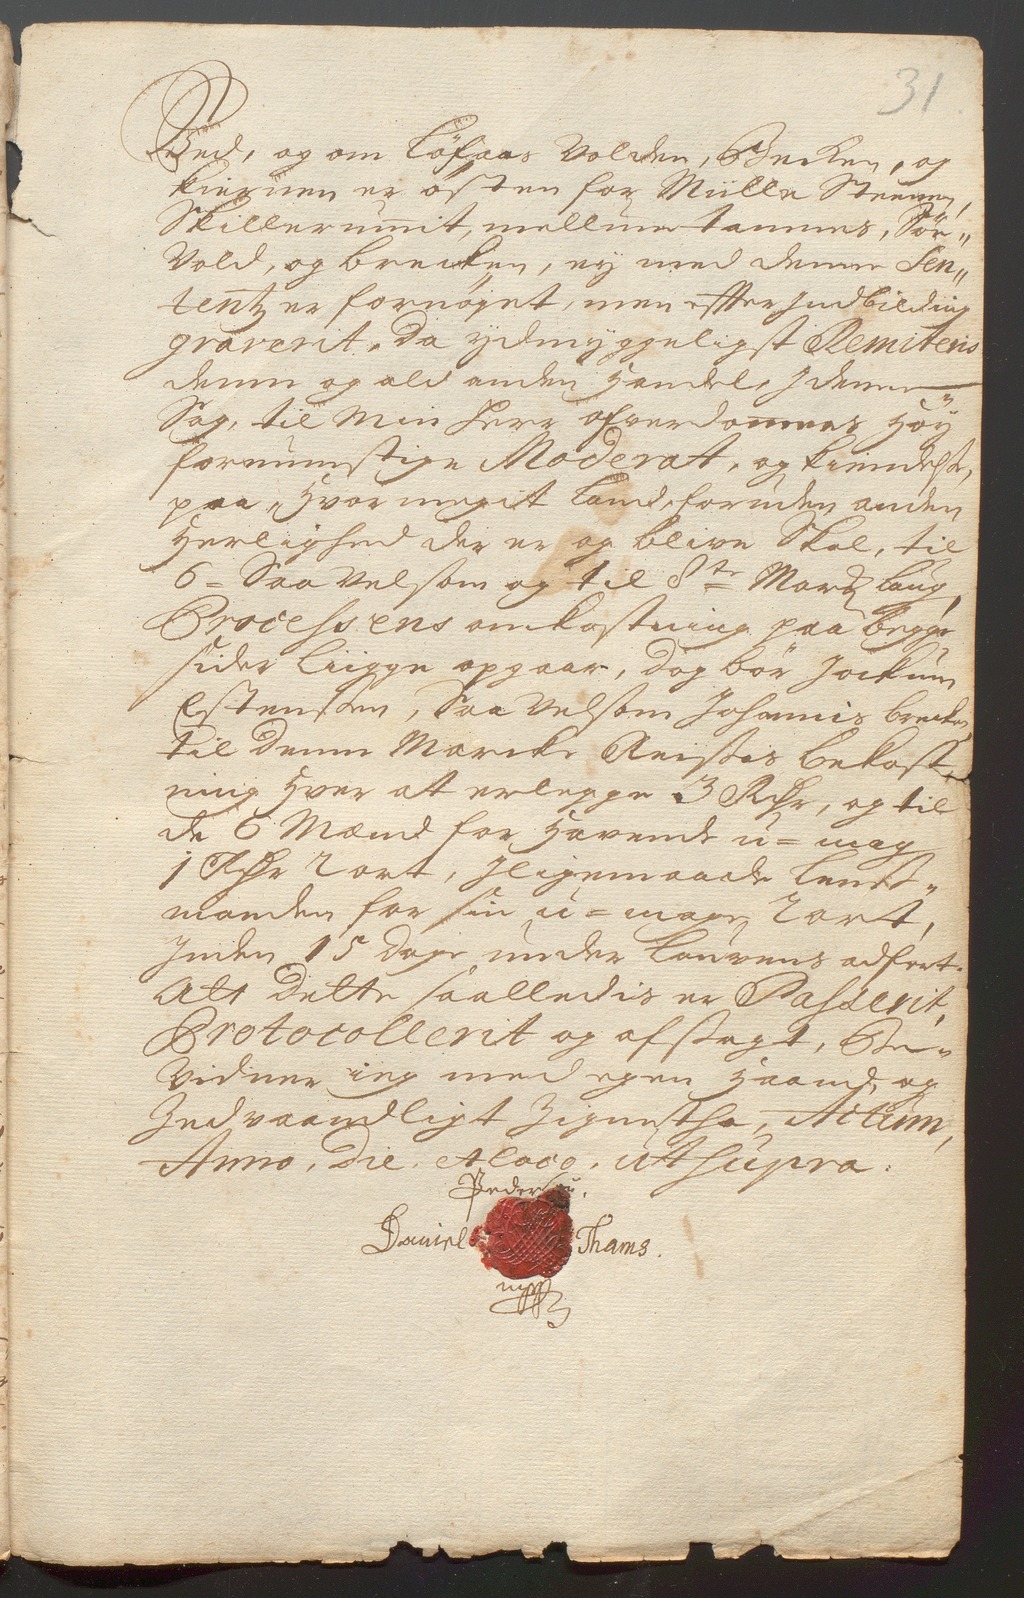 31
Ved, og om Löfaas Volden, Becken, og
kiernen er östen for Mülle Steenen,
Skillerumit, mellum tammes, Sör„
Vold, og brecken, ey med denne Sen„
tentz er fornöyet, men effter Indbilding
graverit, da ydmyggeligst Remiteris
denne og ald anden Handel, I denne
Sag, til Min Herr ofverdommers Höy
fornumstige Moderat, og kiendelse,
paa, Hvor megit Land, foruden anden
Herlighed der er og blive Skal, til
6 = Saa Velsom og til 8te Mar laug,
Processens omkostning paa begge
sider liigge opgaar, dog bör Jockum
Estensen, Saa Velsom Johannis brecken
til denne Marcke Reisis bekost„
ning Hver at erlegge 3 Rdr, og til
de 6 Mænd for Havende u=mag
1 Rdr 2 ort, Iligemaade Lends„
manden for sin u=mage 2 ort,
Inden 15 dage under Louvens adfert.
Alt dette saalledis er Passerit,
Protocollerit og afsagt, Be„
vidner ieg med egen Haand, og
hedvaandligt Zignethe, Actum,
Anno, Die, et Loco, ut Supra.
Daniel Thams.